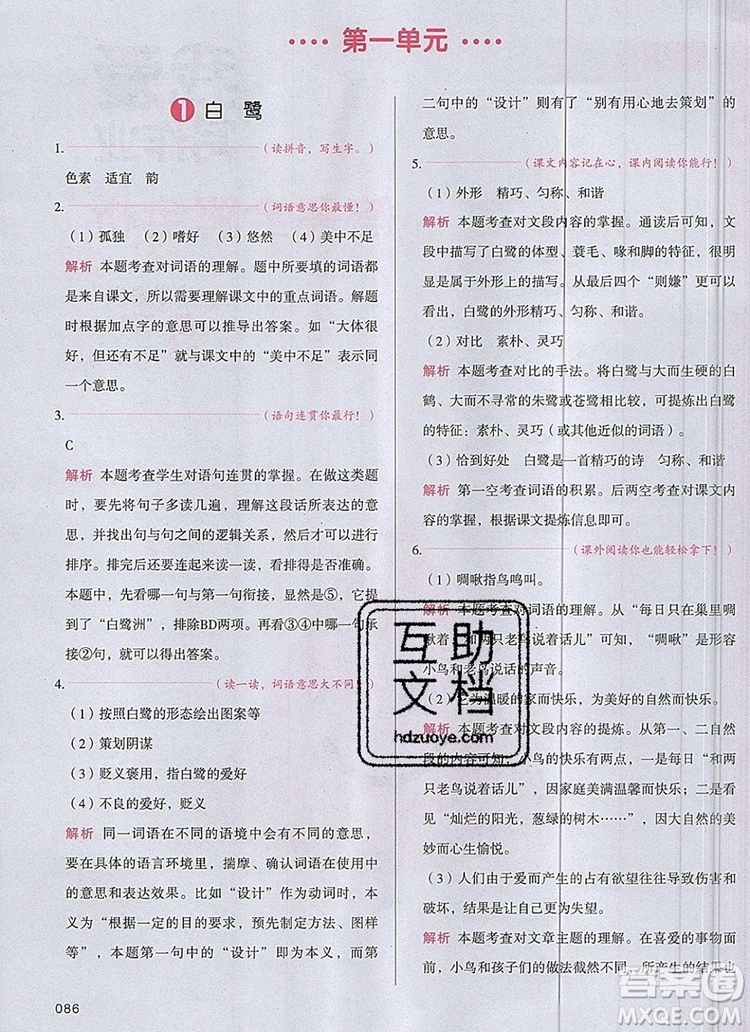 第一单元
1 白 鹭
1. （读拼音，写生字。）
色素 适宜 韵
2. （词语意思你最懂！）
（1）孤独 （2）嗜好 （3）悠然 （4）美中不足
解析 本题考查对词语的理解。题中所要填的词语都
是来自课文，所以需要理解课文中的重点词语。解题
时根据加点字的意思可以推导出答案。如“大体很
好，但还有不足”就与课文中的“美中不足”表示同
一个意思。
3. （语句连贯你最行！）
C
解析 本题考查学生对语句连贯的掌握。在做这类题
时，要先将句子多读几遍，理解这段话所表达的意
思，并找出句与句之间的逻辑关系，然后才可以进行
排序。排完后还要再读一读，看语句是否连贯通顺。
本题中，首先看哪一句与第一句衔接，是⑤，它提
到了“白鹭洲”，排除BD两项。再看③④中哪一句连
接②句，就可以得出答案。
4. （读一读，词语意思大不同！）
（1）按照白鹭的形态绘出图案等
（2）策划阴谋
（3）贬义褒用，指白鹭的爱好
（4）不良的爱好，贬义
解析 同一词语在不同的语境中会有不同的意思，
要在具体的语言环境里，揣摩、确认词语在语境中
的意思和表达效果。比如“设计”作为动词时，本
义为“根据一定的目的要求，预先制定方法、图样
等”，本题第一句中的“设计”即为本义，而第
二句中的“设计”则有了“别有用心地去策划”的
意思。
5. （课文内容记在心，课内阅读你能行！）
（1）外形 精巧、匀称、和谐
解析 本题考查对文段内容的掌握。通读后可以发
现，文段中写了白鹭的体型、蓑毛、喙和脚的特征，很明
显是属于外形上的描写。从下面的四个“则嫌”可以
看出，白鹭的外形精巧、匀称、和谐。
（2）对比 素朴、灵巧
解析 本题考查对比的手法。将白鹭与大而生硬的白
鹤、大而不寻常的朱鹭或苍鹭作对比，突出了白鹭的
特征：素朴、灵巧（或其他近似的词语）。
（3）恰到好处 白鹭是一首精巧的诗 匀称、和谐
解析 第一空考查词语的积累。后两空考查对课文内
容的掌握，根据课文提炼信息即可。
6. （课外阅读你也能轻松拿下！）
（1）啁啾指鸟鸣叫。
解析 本题考查对词语的理解。从“每日只在巢里啁
啾着和两只老鸟说着话儿”可以看出，“啁啾”是形容
小鸟和老鸟说话的声音。
（2）它为温暖的家而快乐。
解析 本题考查对文段内容的提炼。从第一、二自然
段的内容可知，小鸟的快乐有两点，一是在“和两
只老鸟说着话儿”，因家庭美满温馨而快乐；二是看
见“灿烂的阳光，葱绿的树木……”，因大自然的美
妙而心生愉悦。
（3）人们由于爱而产生的占有欲望往往导致摧残和
破坏，结果是让爱的主体更为失望。
解析 本题考查对文章主题的理解。在喜爱的事物面
前，小鸟和孩子们的做法截然不同，所产生的结果也
086
互助
文档
hdzuoye.com
答案圈
MXQE.COM